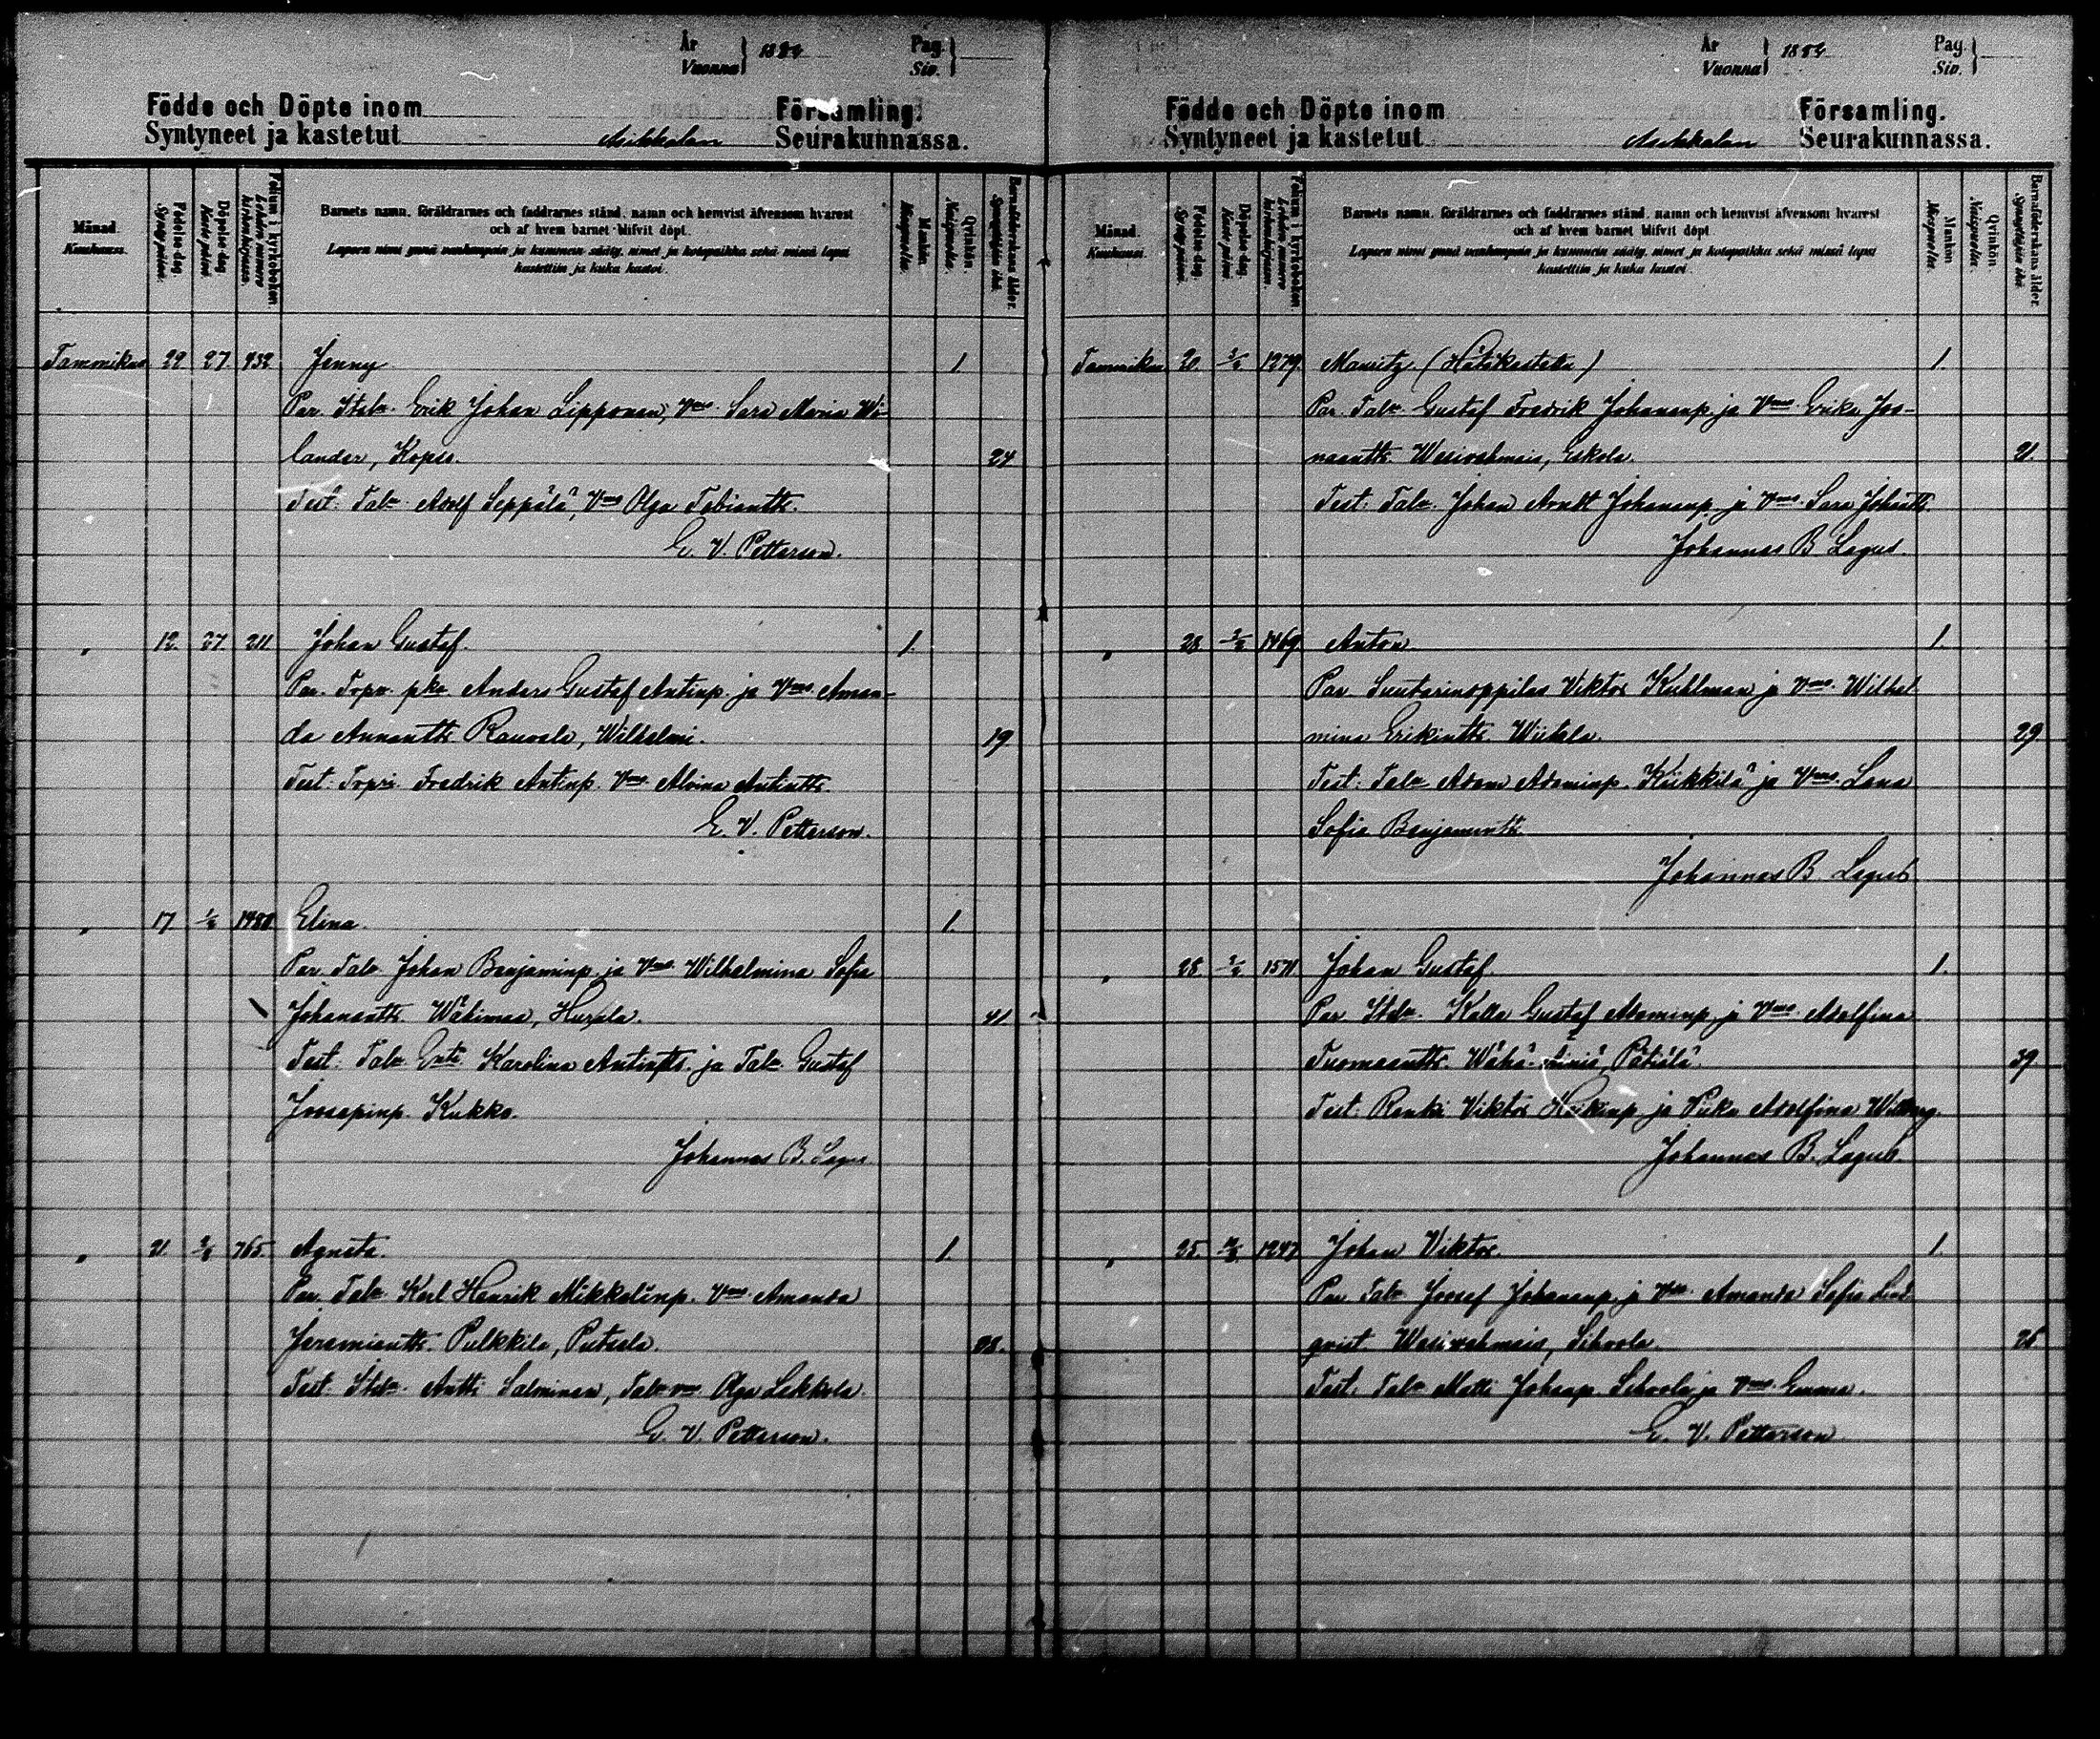 År
Vuonna } 1884
Pag.
Siv. }
Födde och Döpte inom Församling.
Syntyneet ja kastetut Asikkalan Seurakunnassa.
Månad.
Kuukausi.
Födelse-dag.
Syntymäpäivä.
Döpelse-dag.
Kaste-päivä.
Folium i kyrkoboken.
Lehden numero kirkonkirjassa.
Barnets namn, föräldrarnes och faddrarnes stånd, namn och hemvist äfvensom hvarest
och af hvem barnet blifvit döpt.
Lapsen nimi ynnä vanhempain ja kummein sääty, nimet ja kotopaikka sekä missä lapsi
kastettiin ja kuka kastoi.
Mankön.
Miespuolia.
Qvinkön.
Naispuolia.
Barnaföderskans ålder.
Synnyttäjän ikä.
Tammikuu 22 27. 432 Jenny 1.
Par. Itsln. Erik Johan Lipponen, Vmo Sara Maria Wi-
lander, Kopsu. 24
Test. Taln Adolf Seppälä, Vmo Olga Tobiantt.
E. V. Petterson.
" 12. 27. 211 Johan Gustaf. 1.
Par. Torp. pka. Anders Gustaf Antinp. ja Vmo Aman-
da Annantt. Rauvala, Wilhelmi. 19
Test. Torpr. Fredrik Antinp. Vmo Alvina Antintt.
E. V. Petterson.
" 17 1/2 1480 Elina. 1.
Par. Taln Johan Benjaminp. ja Vmo Wilhelmina Sofia
Johanantt. Wähimaa, Hursla. 41
Test. Taln Karolina Antintt. ja Taln Gustaf
Joosepinp. Kukko.
Johannes B. Lagus
" 21. 2/2 765 Agneta. 1.
Par. Taln Karl Henrik Mikkelinp. Vmo Amanda
Jeremiantt. Pulkkila, Putsala. 28.
Test. Itsln. Antti Salminen, Taln vmo Olga Lakkola
E. V. Petterson.
År
Vuonna } 1884
Pag.
Siv. }
Födde och Döpte inom Församling.
Syntyneet ja kastetut Asikkalan Seurakunnassa.
Månad.
Kuukausi.
Födelse-dag.
Syntymäpäivä.
Döpelse-dag.
Kaste-päivä.
Folium i kyrkoboken.
Lehden numero kirkonkirjassa.
Barnets namn, föräldrarnes och faddrarnes stånd, namn och hemvist äfvensom hvarest
och af hvem barnet blifvit döpt.
Lapsen nimi ynnä vanhempain ja kummein sääty, nimet ja kotopaikka sekä missä lapsi
kastettiin ja kuka kastoi.
Mankön
Miespuolia.
Qvinkön
Naispuolia.
Barnaföderskans ålder.
Synnyttäjän ikä.
Tammikuu 20. 3/2 1279. Mauritz. (Hätäkastettu) 1.
Par. Taln Gustaf Fredrik Johananp. ja Vmo Erika Joo-
naantt. Wesivehmais, Eskola. 21.
Test. Taln Johan Johananp. ja Vmo Sara Johantt.
Johannes B Lagus.
" 28 3/2 1469. Anton 1.
Par. Suutarinoppilas Viktor Kuhlman ja Vmo Wilhel
mina Erikintt. Wiitala. 29
Test. Taln Adam Adaminp. Kiikkilä ja Vmo Lena
Sofia Benjamintt.
Johannes B. Lagus
" 28 3/2 1571 Johan Gustaf. 1.
Par. Itsln. Kalle Gustaf Adaminp. ja Vmo Adolfina
Tuomaantt. Wähä-Äiniä, Pätiälä. 39.
Test. Renki Viktor Heikinp. ja Piika Adolfina
Johannes B. Lagus.
" 25. 1247 Johan Viktor. 1
Par. Taln Josef Johananp. ja Vmo Amanda Sofia Lind
qvist. Wesivehmais, Sihvola. 26
Test. Taln Matti Johanp. Sihvola ja Vmo Emma.
E. V. Petterson